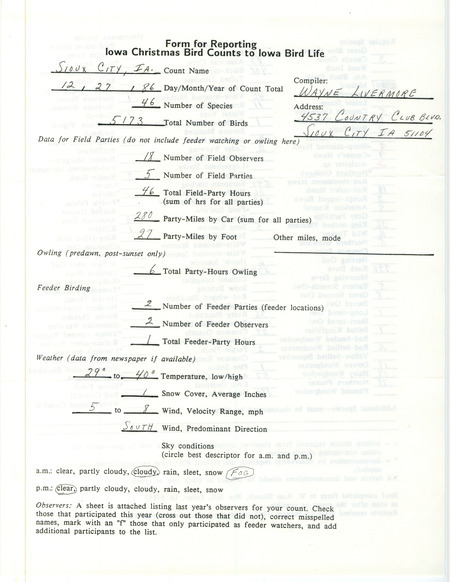 Form for Reporting
Iowa Christmas Bird Counts to Iowa Bird Life
SIOUX CITY, IA. Count Name
12, 27, 86 Day/Month/Year of Count Total
Compiler:
WAYNE LIVERMORE
46 Number of Species
Address:
5173 Total Number of Birds
4537 COUNTRY CLUB BLVD.
SIOUX CITY IA 51104
Data for Field Parties (do not include feeder watching or owling here)
18 Number of Field Observers
5 Number of Field Parties
46 Total Field-Party Hours
(sum of hrs for all parties)
280 Party-Miles by Car (sum for all parties)
27 Party-Miles by Foot Other miles, mode
Owling (predawn, post-sunset only)
6 Total Party-Hours Owling
Feeder Birding
2 Number of Feeder Parties (feeder locations)
2 Number of Feeder Observers
1 Total Feeder-Party Hours
Weather (data from newspaper if available)
29° to 40° Temperature, low/high
1 Snow Cover, Average Inches
5 to 8 Wind, Velocity Range, mph
SOUTH Wind, Predominant Direction
Sky conditions
(circle best descriptor for a.m. and p.m.)
a.m.: clear, partly cloudy, cloudy, rain, sleet, snow FOG
p.m.: clear, partly cloudy, cloudy, rain, sleet, snow
Observers: A sheet is attached listing last year's observers for your count. Check
those that participated this year (cross out those that did not), correct misspelled
names, mark with an "f" those that only participated as feeder watchers, and add
additional participants to the list.